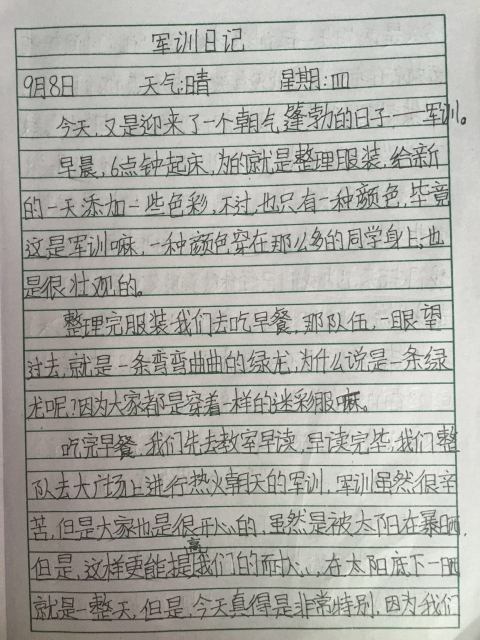 军训日记
9月8日 天气:晴 星期:四
今天,又是迎来了一个朝气篷勃的日子——军训。
早晨,6点钟起床,为的就是整理服装,给新
的一天添加一些色彩,不过,也只有一种颜色,毕竟
这是军训嘛,一种颜色穿在那么多的同学身上,也
是很壮观的。
整理完服装,我们去吃早餐,那队伍,一眼望
过去,就是一条弯弯曲曲的绿龙,为什么说是一条绿
龙呢?因为大家都是穿着一样的迷彩服嘛。
吃完早餐,我们先去教室早读,早读完毕,我们整
队去大广场上进行热火朝天的军训,军训虽然很辛
苦,但是大家也是很开心的,虽然是被太阳在暴晒,
但是,这样更能提高我们的耐心,在太阳底下一晒
就是一整天,但是,今天真得是非常特别,因为我们